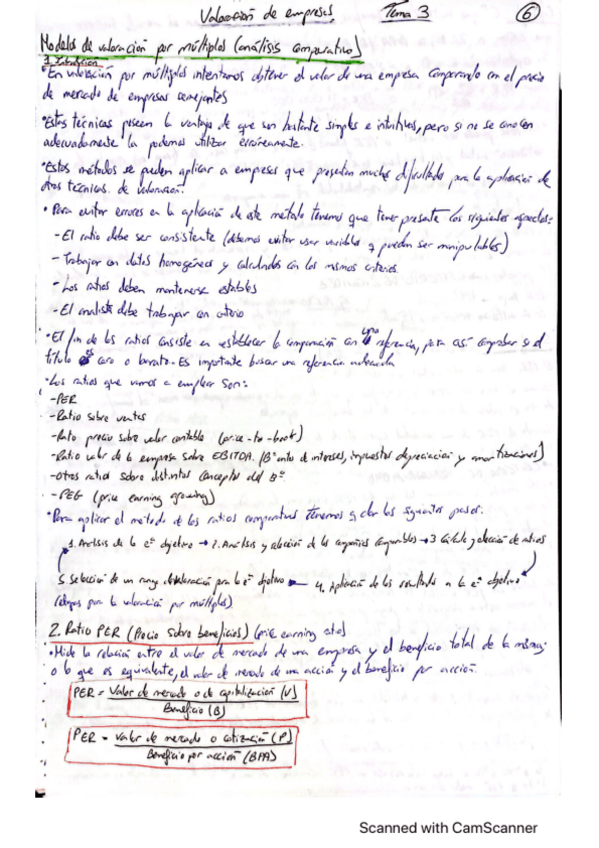 Valoración de empresas Tema 3 6
Modelos de valoración por múltiplos (análisis comparativo)
1. Introducción
•En valoración por múltiplos intentamos obtener el valor de una empresa comparando con el precio
de mercado de empresas semejantes
•Estas técnicas poseen la ventaja de que son bastante simples e intuitivas, pero si no se conocen
adecuadamente la podemos utilizar erróneamente.
•Estos métodos se pueden aplicar a empresas que presentan mucha dificultad para la aplicación de
otras técnicas de valoración.
• Para evitar errores en la aplicación de este método tenemos que tener presente los siguientes aspectos:
- El ratio debe ser consistente (debemos evitar usar variables q pueden ser manipulables)
- Trabajar con datos homogéneos y calculados con los mismos criterios.
- Los ratios deben mantenerse estables
- El analista debe trabajar con criterio
•El fin de los ratios consiste en establecer la comparación con una referencia, para así comprobar si el
título es caro o barato. Es importante buscar una referencia
•Los ratios que vamos a emplear son:
-PER
-Ratio sobre ventas
-Ratio precio sobre valor contable (price-to-book)
-Ratio valor de la empresa sobre EBITDA. (Bº antes de intereses, impuestos depreciación y amortizaciones)
-Otros ratios sobre distintos conceptos del Bº
- PEG (price earning growing)
•Para aplicar el método de los ratios comparativos tenemos q dar los siguientes pasos:
1. Análisis de la eª objetivo → 2. Análisis y elección de las compañías comparables → 3 Cálculo y elección de ratios
5. Selección de un rango de valoración para la eª objetivo ← 4. Aplicación de los resultados a la eª objetivo
(etapas para la valoración por múltiplos)
2. Ratio PER (Precio sobre beneficios) (price earning ratio)
•Mide la relación entre el valor de mercado de una empresa y el beneficio total de la misma;
o lo que es equivalente, el valor de mercado de una acción y el beneficio por acción.
PER = Valor de mercado o de capitalización (V)
Beneficio (B)
PER = Valor de mercado o cotización (P)
Beneficio por acción (BPA)
Scanned with CamScanner